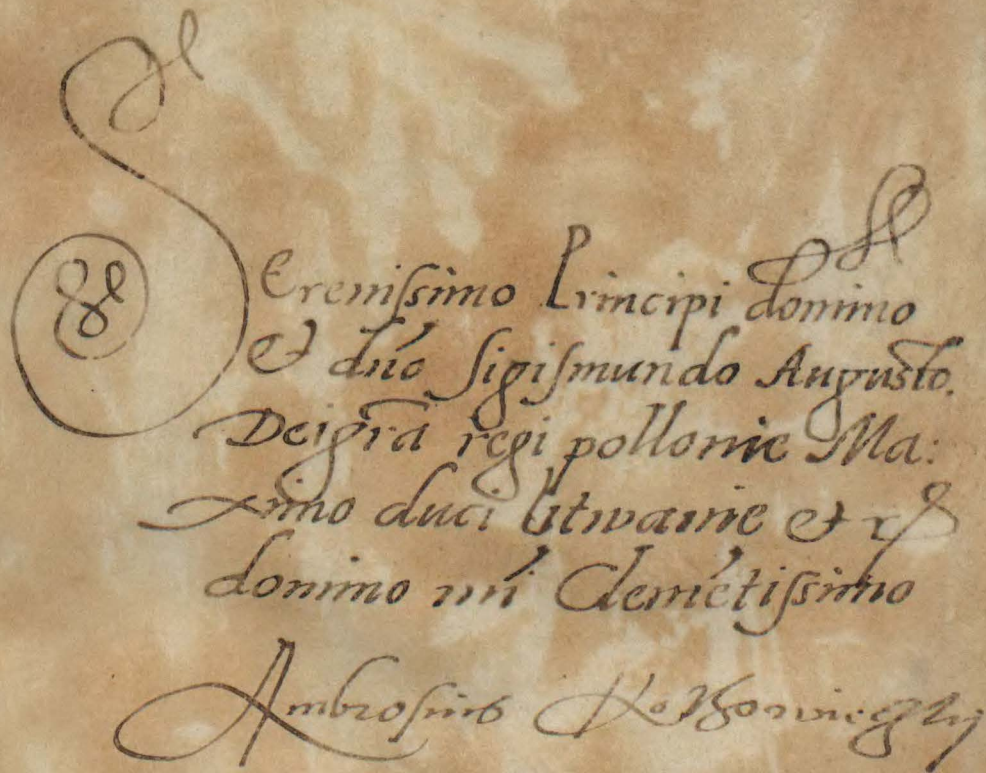 Serenissimo Principi domino
et dno Sigismundo Augusto.
Dei gra regi pollonie Ma:
ximo duci litwanie et
domino mi Clemetissimo
Ambrosius